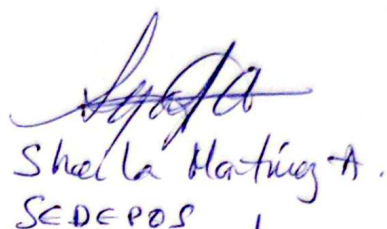 Sheila Martínez A.
SEDEPOS